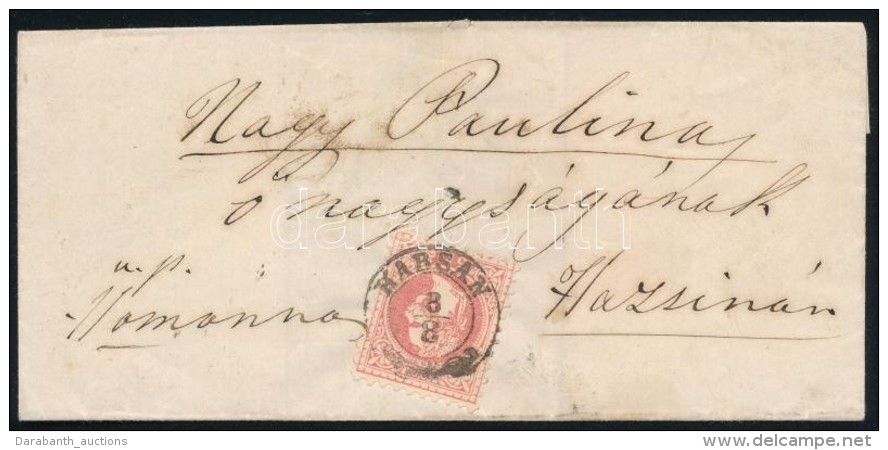 Nagy Paulina
ő nagyságának
u. p.
Homonna
Hazsinán
HARSÁN
8
8
Darabanth
Darabanth_auctions
www.delcampe.net